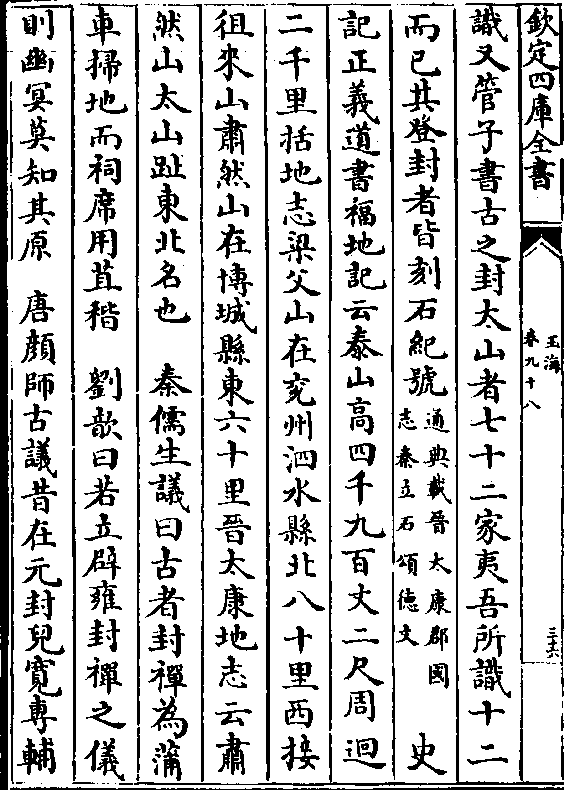 欽定四庫全書
玉海
卷九十八
三十六
識又管子書古之封太山者七十二家夷吾所識十二
而已其登封者皆刻石紀號通典載晉太康郡國志秦立石頌德文　史
記正義道書福地記云泰山高四千九百丈二尺周迴
二千里括地志梁父山在兖州泗水縣北八十里西接
徂來山肅然山在博城縣東六十里晉太康地志云肅
然山太山趾東北名也　秦儒生議曰古者封禪為蒲
車掃地而祠席用苴稭　劉歆曰若立辟雍封禪之儀
則幽冥莫知其原　唐顔師古議昔在元封兒寛專輔